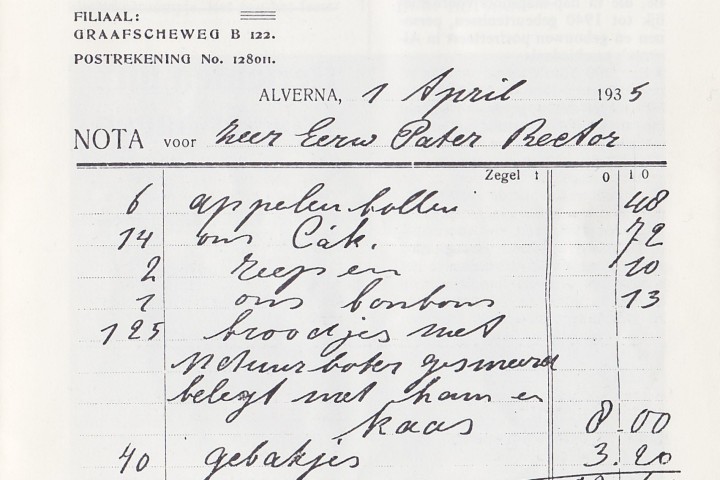 FILIAAL:
GRAAFSCHEWEG B 122.
POSTREKENING No. 128011.
ALVERNA, 1 April 1935
NOTA voor Zeer Eerw Pater Rector
Zegel t 0 10
6 appelenbollen 48
14 ons Cák. 72
2 reepen 10
1 ons bonbons 13
125 broodjes met
Natuurboter gesmeerd
belegt met ham en
kaas 8.00
40 gebakjes 3.20